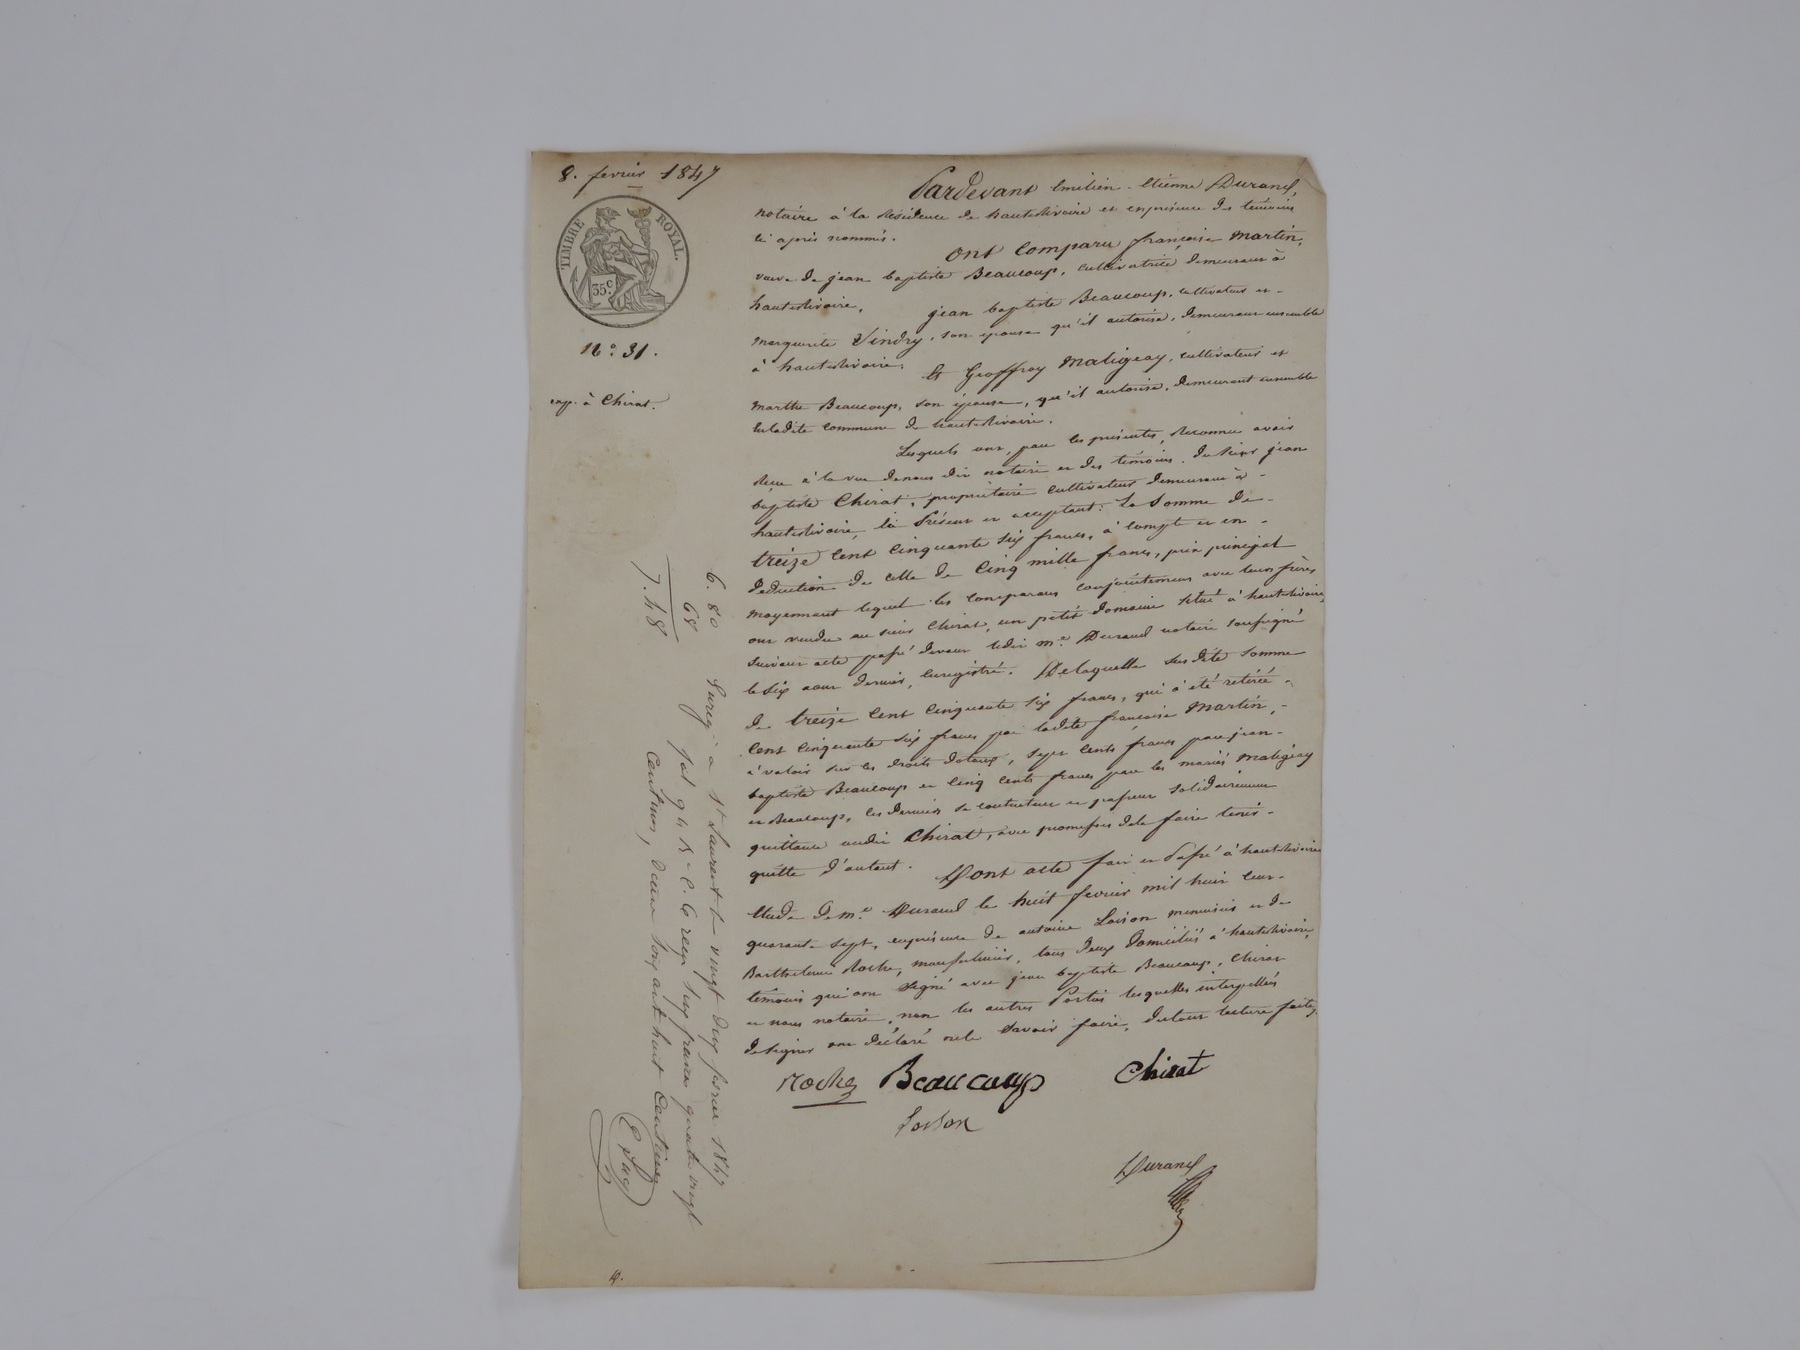 8. fevrier 1847
TIMBRE ROYAL.
35c.
N.° 31.
exp. à Chirat.
Pardevant Emilien-Etienne Durand,
notaire à la Résidence de hauterivoire et en présence des témoins
ci après nommés.
ont Comparu françoise Martin,
veuve de jean baptiste Beaucoup, cultivatrice demeurant à
hauterivoire,
jean baptiste Beaucoup, cultivateur et
marguerite Vindry, son épouse qu'il autorise, demeurant ensemble
à hauterivoire;
Et Geoffroy Maligeay, cultivateur et
marthe Beaucoup, son épouse, qu'il autorise, demeurant ensemble
en ladite commune de hauterivoire.
Lesquels ont, par les présentes, Reconnu avoir
Reçu à la vue de nous dit notaire et des témoins, du sieur jean
baptiste Chirat, propriétaire cultivateur demeurant à
hauterivoire, ici Présent et acceptant: la Somme de
treize Cent Cinquante six francs, à compte et en
déduction de celle de Cinq mille francs, prix principal
moyennant lequel les comparants conjointement avec leurs frères
ont vendu au sieur Chirat, un petit domaine situé à hauterivoire
suivant acte passé devant ledit m.e Durand notaire soussigné
le six aout dernier, enregistré. De laquelle susdite somme
de treize Cent Cinquante six francs, qui a été retirée
Cent Cinquante six francs par ladite françoise Martin,
à valoir sur ses droits dotaux, sept cents francs par jean-
baptiste Beaucoup et Cinq Cents francs par les mariés Maligeay
et Beaucoup, ces derniers se contentent et passent solidairement
quittance audit Chirat, avec promesses de le faire tenir
quitte d'autant.
Dont acte fait et Passé à hauterivoire
Etude de m.e Durand le huit fevrier mil huit Cent
quarante Sept, en présence de antoine Loison menuisier et de
Barthelemi Roche, tous deux Domiciliés à hauterivoire,
témoins qui ont Signé avec jean baptiste Beaucoup, Chirat
et nous notaire, non les autres Parties lesquelles interpellées
de Signer ont déclaré ne le Savoir faire, du tout lecture faite.
Roche Beaucoup Chirat
Loison
Durand
6. 80
68
7. 48
Enreg. à St Laurent le vingt deux fevrier 1847
fol 94 Rc C. 6 reçu six francs quatre vingt
Centimes, decime soixante huit Centimes